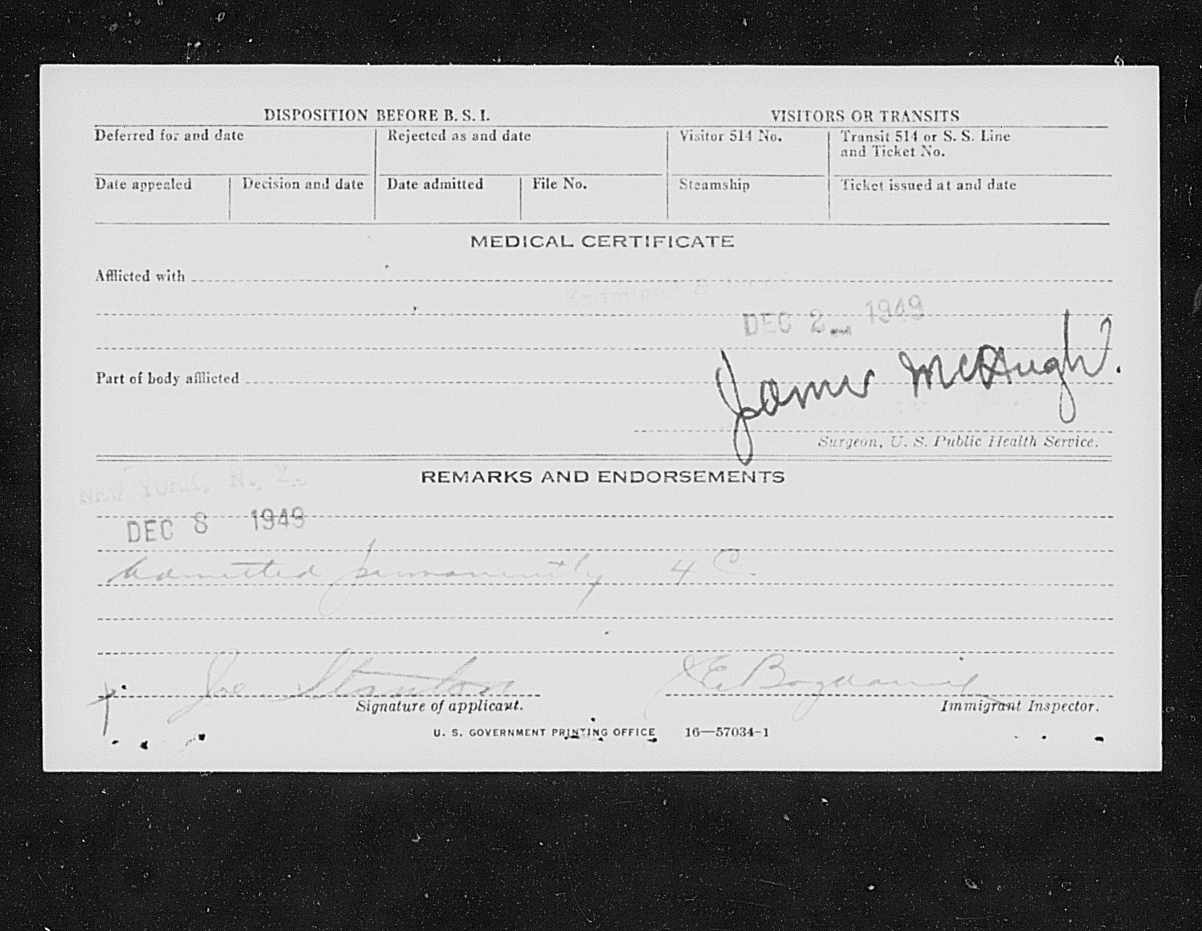 DISPOSITION BEFORE B. S. I.
VISITORS OR TRANSITS
Deferred for and date
Rejected as and date
Visitor 514 No.
Transit 514 or S. S. Line
and Ticket No.
Date appealed
Decision and date
Date admitted
File No.
Steamship
Ticket issued at and date
MEDICAL CERTIFICATE
Afflicted with
DEC 2 1949
Part of body afflicted
James McHugh.
Surgeon, U. S. Public Health Service.
REMARKS AND ENDORSEMENTS
NEW YORK, N. Y.
DEC 8 1949
Admitted permanently 4 C.
Joe Stanton
Signature of applicant.
Immigrant Inspector.
U. S. GOVERNMENT PRINTING OFFICE 16—57034-1